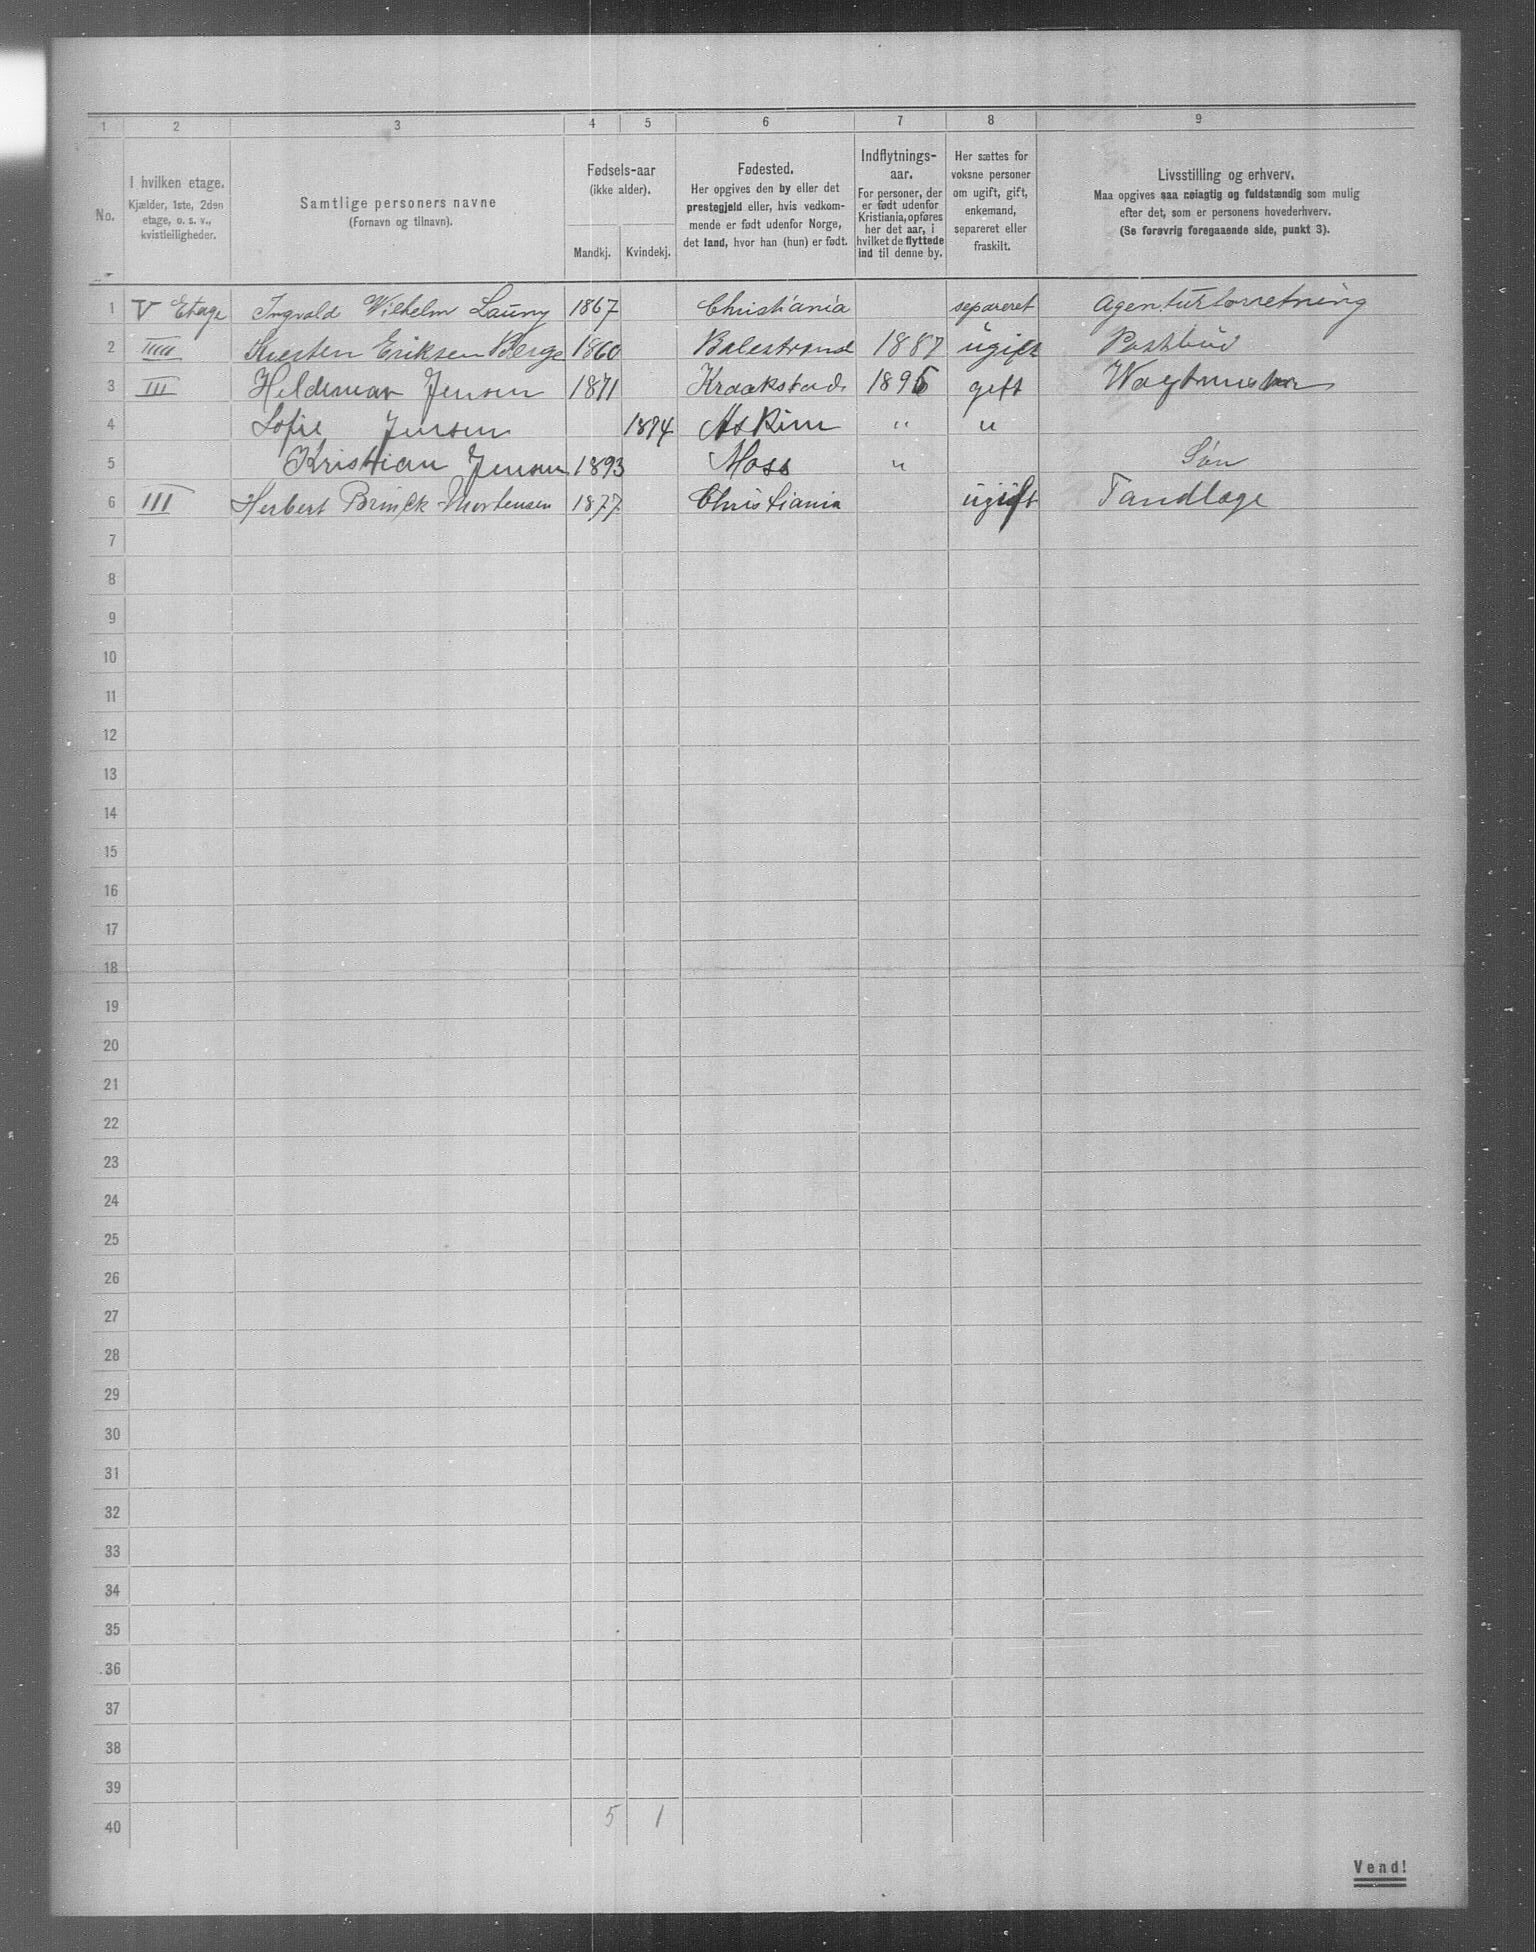 1 2 3 4 5 6 7 8 9
No.
I hvilken etage.
Kjælder, 1ste, 2den
etage, o. s. v.,
kvistleiligheder.
Samtlige personers navne
(Fornavn og tilnavn).
Fødsels-aar
(ikke alder).
Mandkj. Kvindekj.
Fødested.
Her opgives den by eller det
prestegjeld eller, hvis vedkom-
mende er født udenfor Norge,
det land, hvor han (hun) er født.
Indflytnings-
aar.
For personer, der
er født udenfor
Kristiania, opføres
her det aar, i
hvilket de flyttede
ind til denne by.
Her sættes for
voksne personer
om ugift, gift,
enkemand,
separeret eller
fraskilt.
Livsstilling og erhverv.
Maa opgives saa nøiagtig og fuldstændig som mulig
efter det, som er personens hovederhverv.
(Se forøvrig foregaaende side, punkt 3).
1 V Etage Ingvald Wilhelm Launy 1867 Christiania separeret Agenturforretning
2 IIII Kersten Eriksen Berge 1860 Balestrand 1887 ugift Postbud
3 III Heldemar Jensen 1871 Kraakstad 1895 gift Wagtmester
4 Sofie Jensen 1874 Askim " "
5 Kristian Jensen 1893 Moss " Søn
6 III Herbert Brinck Mortensen 1877 Christiania ugift Tandlæge
7
8
9
10
11
12
13
14
15
16
17
18
19
20
21
22
23
24
25
26
27
28
29
30
31
32
33
34
35
36
37
38
39
40 5 1
Vend!